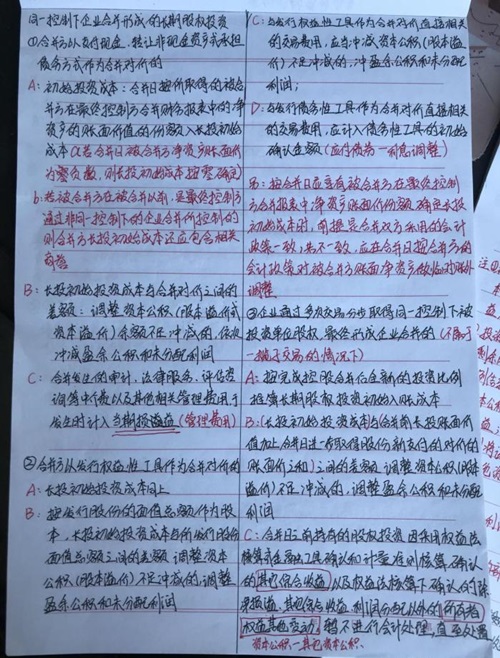 同一控制下企业合并形成的长期股权投资
①合并方以支付现金、转让非现金资产或承担
债务方式作为合并对价的
A：初始投资成本：合并日按取得的被合
并方在最终控制方合并财务报表中的净
资产的账面价值的份额入长投初始
成本（若合并日被合并方净资产账面价
为零负数，则长投初始成本按零确定）
b：若被合并方在被合并以前，是最终控制方
通过非同一控制下的企业合并所控制的
则合并方长投初始成本还应包含相关
商誉
B：长期初始投资成本与合并对价之间的
差额：调整资本公积（股本溢价或
资本溢价）余额不足冲减的，依次
冲减盈余公积和未分配利润
C：合并发生的审计、法律服务、评估咨
询等中介费以及其他相关管理费用于
发生时计入当期损益（管理费用）
②合并方以发行权益性工具作为合并对价的
A：长投初始投资成本同上
B：按发行股份的面值总额作为股
本，长投初始投资成本与所发行股份
面值总额之间的差额调整资本
公积（股本溢价）不足冲减的，调整
盈余公积和未分配利润
C：与发行权益性工具作为合并对价直接相关
的交易费用，应当冲减资本公积（股本溢
价）不足冲减的，冲盈余公积和未分配
利润；
D：与发行债务性工具作为合并对价直接相关
的交易费用，应计入债务性工具的初始
确认金额（应付债券—利息调整）
B：按合并日应享有被合并方在最终控制方
合并报表中净资产账面价份额确定长投
初始成本时，前提是合并双方采用的会计
政策一致；若不一致，应在合并日按合并方的
会计政策对被合并方账面净资产做临时账外
调整
③企业通过多次交易分步取得同一控制下被
投资单位股权，最终形成企业合并的（不属于
一揽子交易的情况下）
A：按完成控股合并后全新的投资比例
推算长期股权投资初始入账成本
B：（长投初始投资成本）与（合并前长投账面价
值加上合并日进一步取得股份新支付的对价的
账面价之和）之间的差额，调整资本公积（股本
溢价）不足冲减的，调整盈余公积和未分配
利润
C：合并日之前持有的股权投资因采用权益法
核算或金融工具确认和计量准则核算确认
的其他综合收益以及权益法核算下确认的除
净损益、其他综合收益、利润分配以外的所有者
权益其他变动，暂不进行会计处理，直至处置
资本公积—其他资本公积．